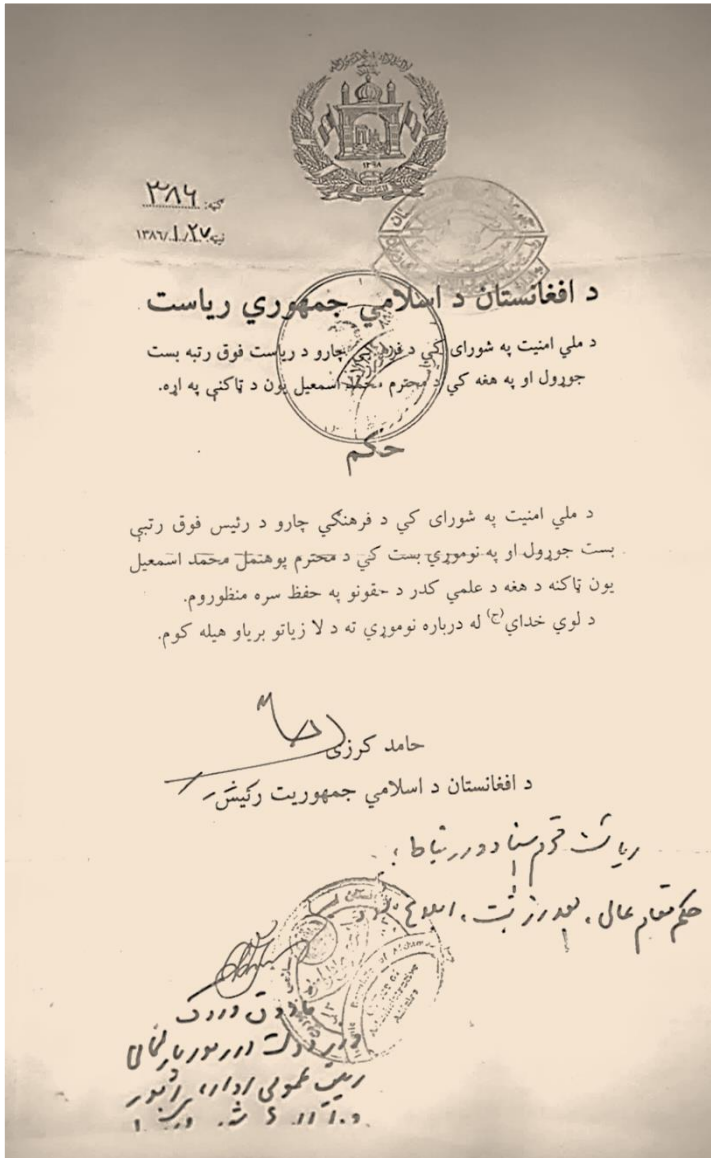 ۱۲۹۸
ګڼه: ۳۸۶
نېټه: ۲۷/۱/۱۳۸۶
د افغانستان د اسلامي جمهوري ریاست
د ملي امنیت په شورای کي د فرهنګي چارو د ریاست فوق رتبه بست
جوړول او په هغه کي د محترم محمد اسمعیل یون د ټاکني په اړه.
حکم
د ملي امنیت په شورای کي د فرهنګي چارو د رئیس فوق رتبې
بست جوړول او په نوموړي بست کي د محترم پوهنمل محمد اسمعیل
یون ټاکنه د هغه د علمي کدر د حقونو په حفظ سره منظوروم.
د لوي خدای(ج) له درباره نوموړي ته د لا زیاتو بریاو هیله کوم.
حامد کرزی
د افغانستان د اسلامي جمهوریت رئیس
ریاست محترم اسناد و ارتباط:
حکم مقام عالی، بعد از ثبت، ابلاغ
Office of
Administrative
Affairs
فاروق وردگ
وزیر دولت در امور پارلمانی
رئیس عمومی اداره امور